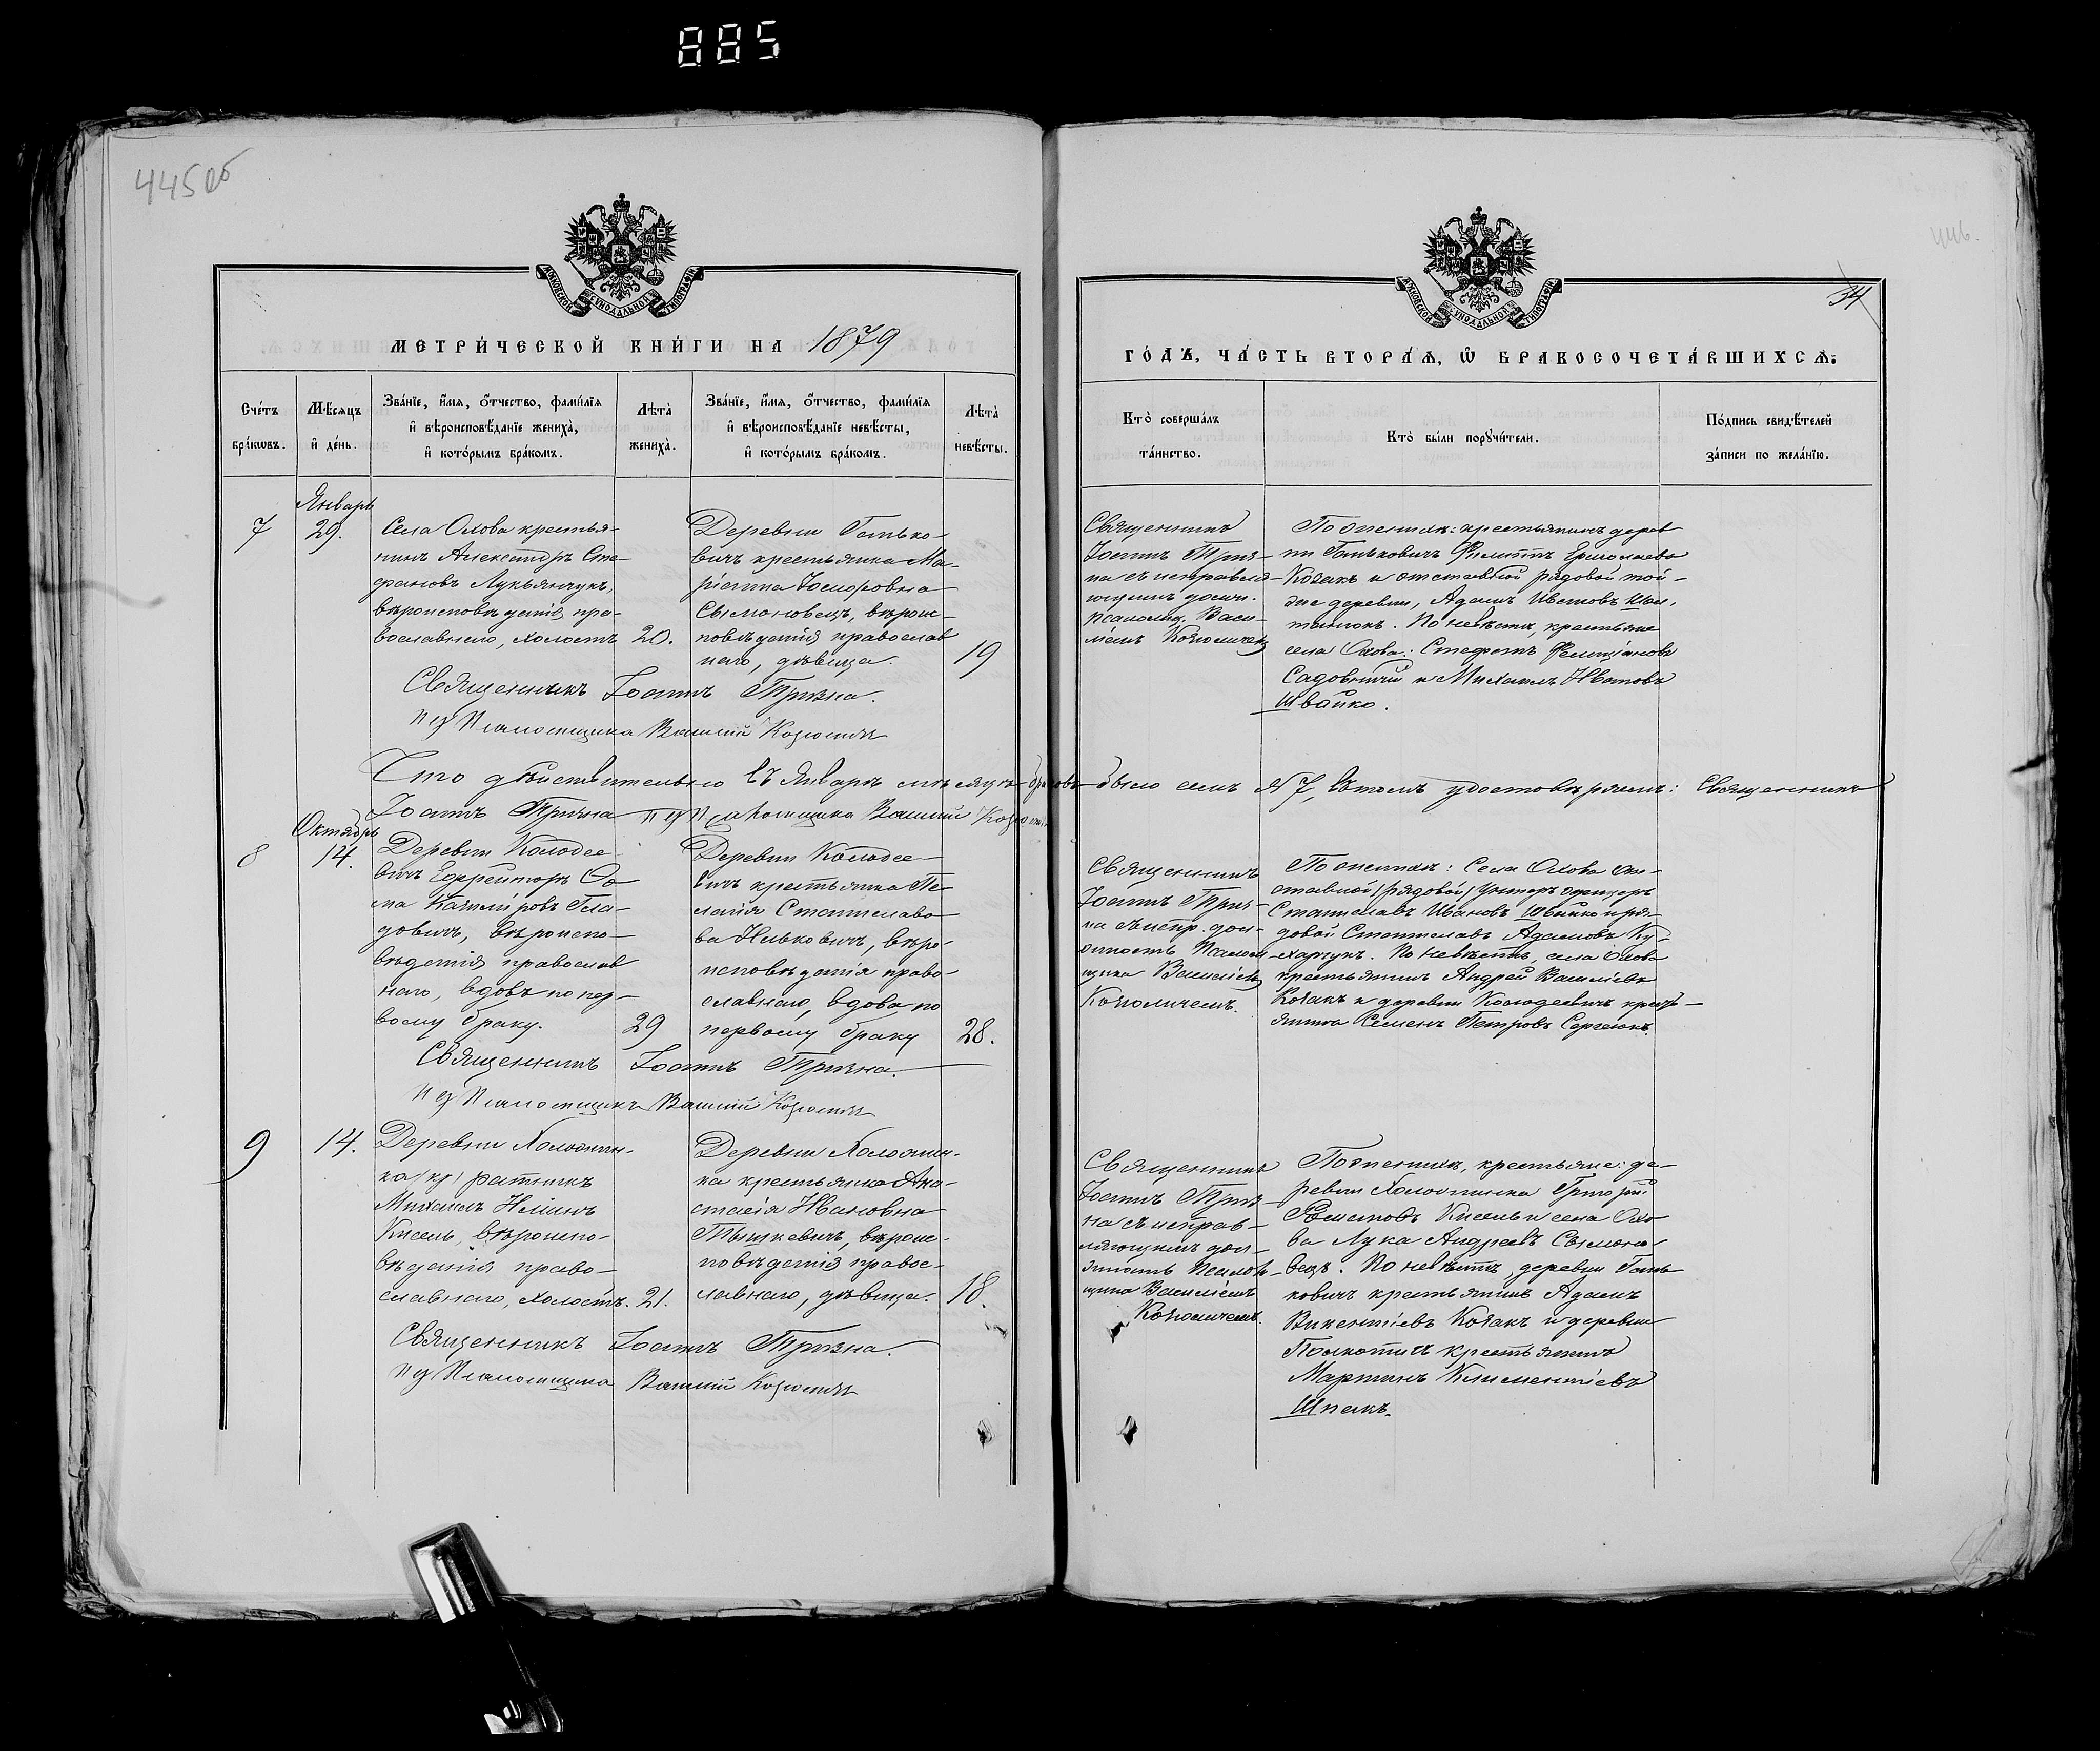 885
445 об
446.
34
МОСКОВСКОЙ СѴНОДАЛЬНОЙ ТИПОГРАФІИ
МЕТРИ́ЧЕСКОЙ КНИ́ГИ НА 1879
МОСКОВСКОЙ СѴНОДАЛЬНОЙ ТИПОГРАФІИ
ГО́ДЪ, ЧА́СТЬ ВТОРА́Я, Ѡ БРАКОСОЧЕТА́ВШИХСЯ.
Сче́тъ
бра́кѡвъ.
Мѣ́сяцъ
и҆ де́нь.
Зва́нїе, и҆́мя, о҆́тчество, фами́лїя
и҆ вѣроисповѣ́данїе жениха̀,
и҆ кото́рымъ бра́комъ.
Лѣта̀
жениха̀.
Зва́нїе, и҆́мя, о҆́тчество, фами́лїя
и҆ вѣроисповѣ́данїе невѣ́сты,
и҆ кото́рымъ бра́комъ.
Лѣта̀
невѣ́сты.
Кто̀ соверша́лъ
та́инство.
Кто̀ бы́ли порꙋчи́тели.
По́дпись свидѣ́телей
за́писи по жела́нїю.
7
Январь
29.
Села Олова крестья-
нинъ Александръ Сте-
фановъ Лукьянчукъ,
вѣроисповѣданія пра-
вославнаго, холостъ
20.
Деревни Гатько-
вичъ крестьянка Ма-
ріанна
Сымоновецъ, вѣроис-
повѣданія православ
наго, дѣвица.
19
Священникъ
Іоаннъ Триз-
на съ исправля-
ющимъ долж.
псаломщ. Васи-
ліемъ
По женихѣ: крестьянинъ дерев
ни Гатьковичъ Филиппъ Ермолаевъ
Козакъ и отставной рядовой той-
же деревни, Адамъ Ивановъ
По невѣстѣ, крестьяне
села Олова: Стефанъ
Садовничій и Михаилъ Ивановъ
Швайко.
Священникъ Іоаннъ Тризна.
Псаломщика Василій
Что дѣйствительно въ Январѣ мѣсяцѣ браковъ было семь №7, въ томъ удостовѣряемъ: Священникъ
Іоаннъ Тризна Псаломщика Василій
8
Октябрь
14.
Деревни Колодее
вичъ Ефрейторъ
Казиміровъ Гла-
довичъ, вѣроиспо-
вѣданія православ
наго, вдовъ по пер-
вому браку.
29
Деревни Колодее-
вичъ крестьянка Пе
лагія Станиславо
ва Ильковичъ, вѣро-
исповѣданія право-
славнаго, вдова по
первому браку
28.
Священникъ
Іоаннъ Триз-
на съ испр. дол-
жность Псалом
щика Василіемъ
По женихѣ: Села Олова от-
ставной (рядовой) Унтеръ офицеръ
Станиславъ Ивановъ Швайко и ря-
довой Станиславъ Адамовъ Ку-
харчукъ. По невѣстѣ, села Олова
крестьянинъ Андрей Василіевъ
Козакъ и деревни Колодеевичъ кресть-
янинъ Семенъ Петровъ Сергеюкъ.
Священникъ Іоаннъ Тризна.
Псаломщикъ Василій
9
14.
Деревни Холостин-
ка ратникъ
Михаилъ Ильинъ
Кисель, вѣроиспо-
вѣданія право-
славнаго, холостъ.
21.
Деревни Холостин-
ка крестьянка Ана-
стасія Ивановна
Тышкевичъ, вѣроис-
повѣданія правос-
лавнаго, дѣвица.
18.
Священникъ
Іоаннъ Триз-
на съ исправ-
ляющимъ дол-
жность Псалом-
щика Василіемъ
По женихѣ, крестьяне: де-
ревни Холостинка Григорій
Кисель и села Оло
ва Лука Андреевъ Сымоно-
вецъ. По невѣстѣ, деревни Гать
ковичъ крестьянинъ Адамъ
Викентіевъ Козакъ и деревни
крестьянинъ
Мартинъ Климентіевъ
Шпакъ.
Священникъ Іоаннъ Тризна.
Псаломщика Василій